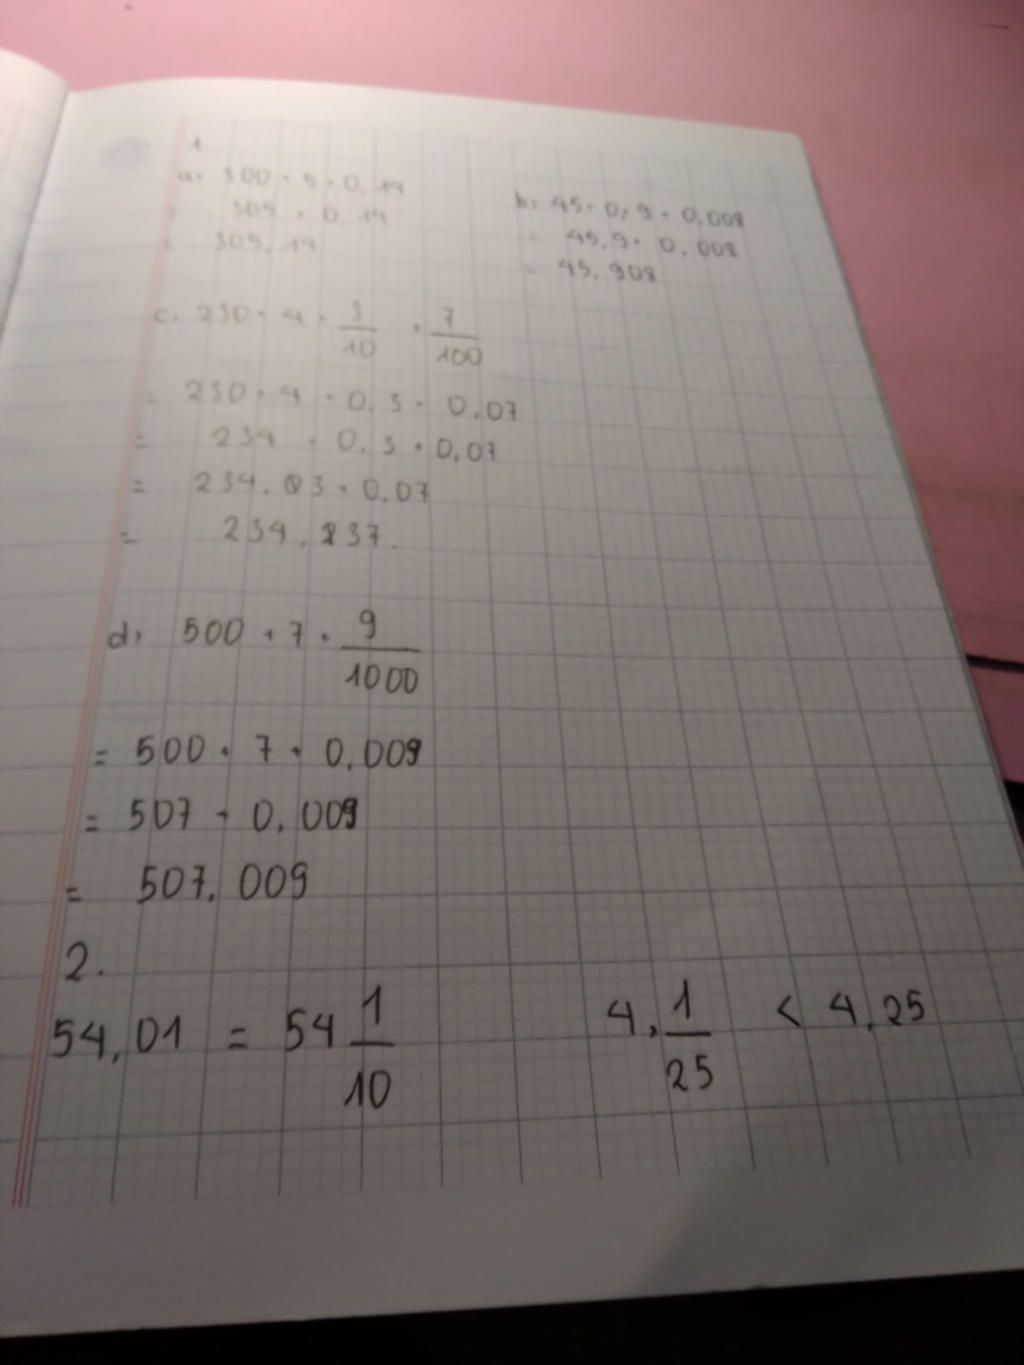 1
a. 300 + 5 + 0.14
= 305 + 0.14
= 305.14
b. 45 + 0.9 + 0.008
= 45.9 + 0.008
= 45.908
c. 230 + 4 + 3/10 + 7/100
= 230 + 4 + 0.3 + 0.07
= 234 + 0.3 + 0.07
= 234.03 + 0.07
= 234.237.
d, 500 + 7 + 9/1000
= 500 + 7 + 0.009
= 507 + 0.009
= 507.009
2.
54,01 = 54 1/10
4, 1/25 < 4,25